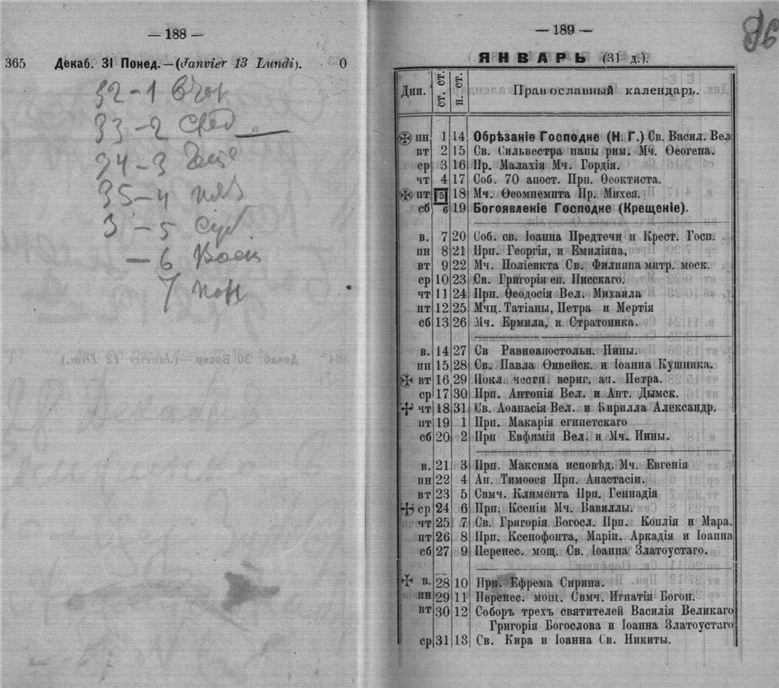 — 188 —
365 Декаб. 31 Понед.—(Janvier 13 Lundi). 0
32-1 Втор
33-2 Сред
34-3
35-4
3-5 Суб
-6 Воск
7 пон
— 189 —
96
ЯНВАРЬ (31 д.).
Дни. ст. ст. н. ст. Православный календарь.
пн 1 14 Обрѣзаніе Господне (Н. Г.) Св. Васил. Вел
вт 2 15 Св. Сильвестра папы рим. Мч. Ѳеогена.
ср 3 16 Пр. Малахія Мч. Гордія.
чт 4 17 Соб. 70 апост. Прп. Ѳеоктиста.
пт 5 18 Мч. Ѳеомпемпта Пр. Михея.
сб 6 19 Богоявленіе Господне (Крещеніе).
в. 7 20 Соб. св. Іоанна Предтечи и Крест. Госп.
пн 8 21 Прп. Георгія, и Емиліана,
вт 9 22 Мч. Поліевкта Св. Филиппа митр. моск.
ср 10 23 Св. Григорія еп. Нисскаго.
чт 11 24 Прп. Ѳеодосія Вел. Михаила
пт 12 25 Мчц. Татіаны, Петра и Мертія
сб 13 26 Мч. Ермила, и Стратоника.
в. 14 27 Св Равноапостольн. Нины.
пн 15 28 Св. Павла Ѳивейск. и Іоанна Кушника.
вт 16 29 Покл. честн. вериг, ап. Петра.
ср 17 30 Прп. Антонія Вел. и Ант. Дымск.
чт 18 31 Св. Аѳанасія Вел. и Кирилла Александр.
пт 19 1 Прп. Макарія египетскаго
сб 20 2 Прп Евфимія Вел. и Мч. Инны.
в. 21 3 Прп. Максима исповѣд. Мч. Евгенія
пн 22 4 Ап. Тимоѳея Прп. Анастасіи.
вт 23 5 Свмч. Климента Прп. Геннадія
ср 24 6 Прп. Ксеніи Мч. Вавиллы.
чт 25 7 Св. Григорія Богосл. Прп. Коплія и Мара.
пт 26 8 Прп. Ксенофонта, Маріи. Аркадія и Іоанна
сб 27 9 Перенес. мощ. Св. Іоанна Златоустаго.
в. 28 10 Прп. Ефрема Сирина.
пн 29 11 Перенес. мощ. Свмч. Игнатія Богон.
вт 30 12 Соборъ трехъ святителей Василія Великаго
Григорія Богослова и Іоанна Златоустаго
ср 31 13 Св. Кира и Іоанна Св. Никиты.